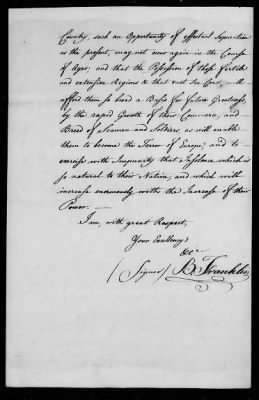 Country, such an Opportunity of effectual Separation
as the present, may not occur again in the Course
of Ages; and that the Possession of those fertile
and extensive Regions & that vast Sea Coast, will
afford them so broad a Basis for future Greatness,
by the rapid Growth of their Commerce, and
Breed of Seamen and Soldiers, as will enable
them to become the Terror of Europe; and to
exercise with Impunity that Insolence which is
so natural to their Nation, and which will
increase enormously with the Increase of their
Power. —
I am, with great Respect,
Your Excellency's
&c
(Signed) B. Franklin